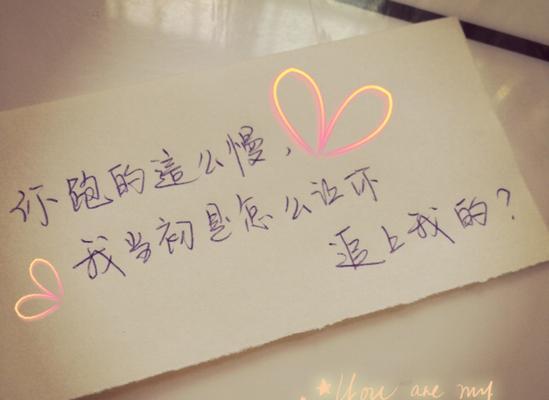 你跑的這么慢,
我当初是怎么让你
追上我的?
You are my